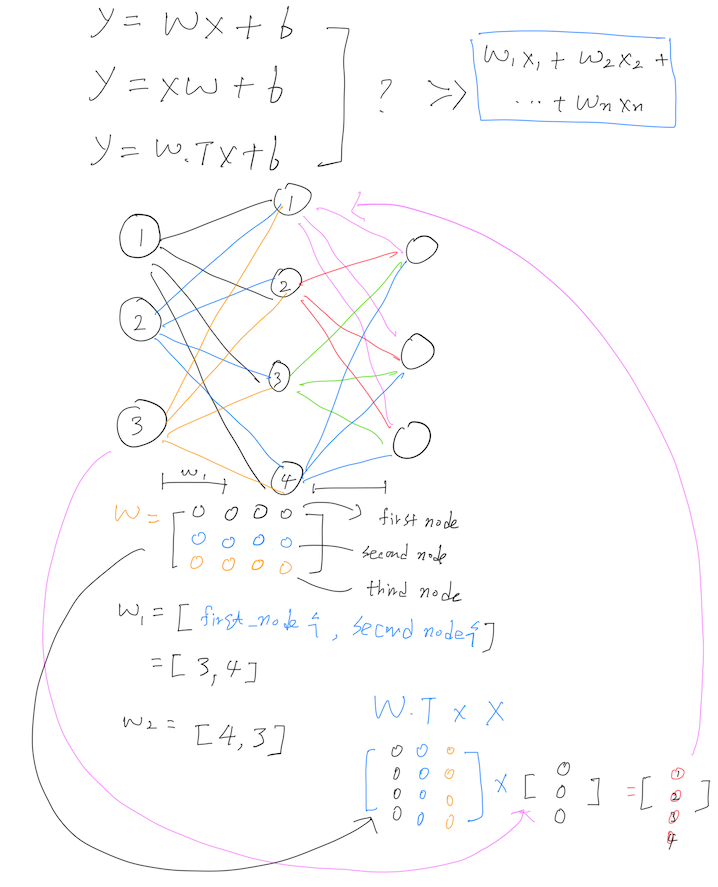 y = wx + b
y = xw + b
y = W.Tx+b
?
w₁x₁ + w₂x₂ +
... + wₙxₙ
1
2
3
1
2
3
4
w₁
W =
[ 0 0 0 0
0 0 0 0
0 0 0 0 ]
first node
second node
third node
w₁ = [ first_node 수, second node수 ]
= [ 3, 4 ]
w₂ = [ 4, 3 ]
W.T x X
[ 0 0 0
0 0 0
0 0 0
0 0 0 ]
x
[ 0
0
0 ]
= [ 1
2
3
4 ]